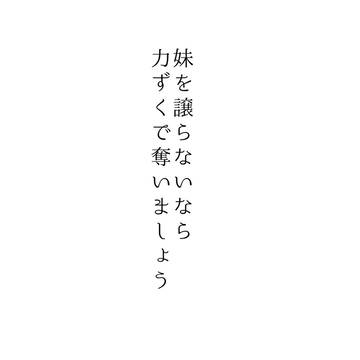 妹を譲らないなら
力ずくで奪いましょう